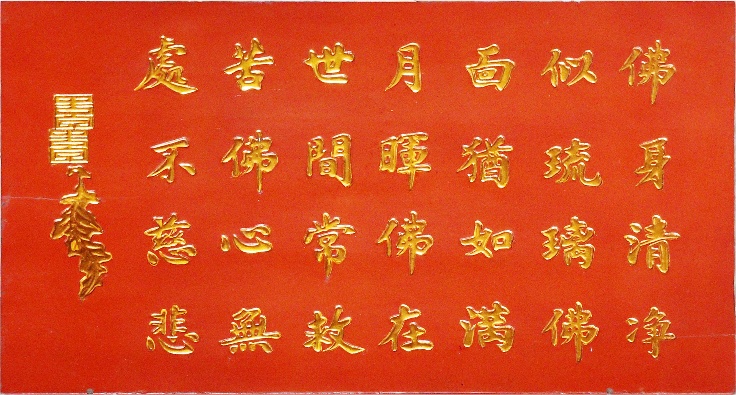 佛身清净
似琉璃佛
面猶如满
月暉佛在
世間常救
苦佛心無
處不慈悲